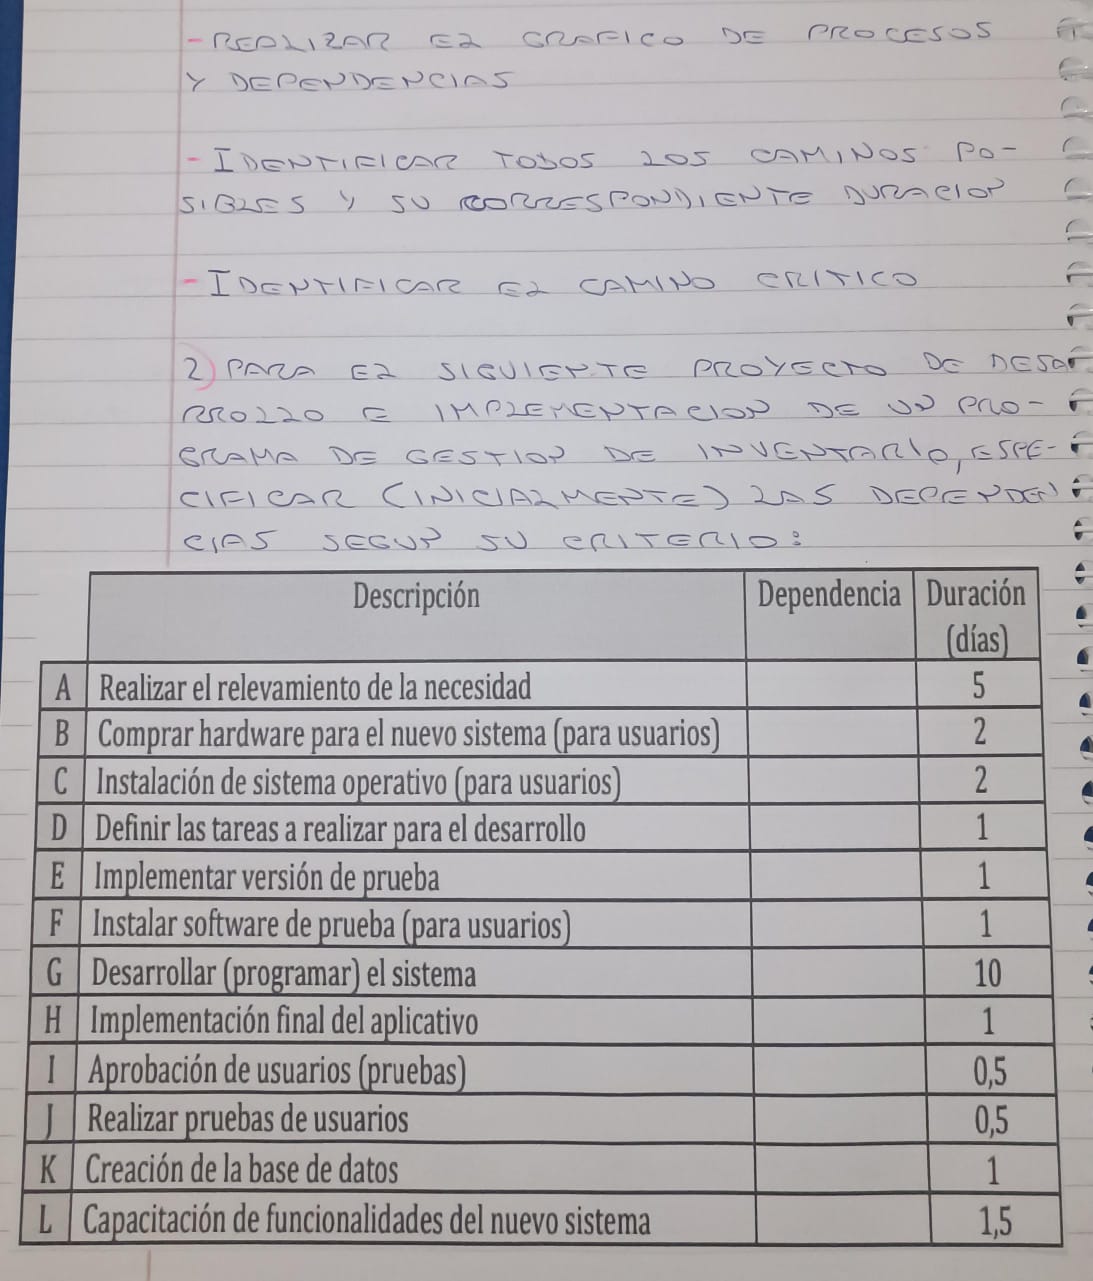 - REALIZAR EL GRAFICO DE PROCESOS
Y DEPENDENCIAS
- IDENTIFICAR TODOS LOS CAMINOS PO-
SIBLES Y SU CORRESPONDIENTE DURACION
- IDENTIFICAR EL CAMINO CRITICO
2) PARA EL SIGUIENTE PROYECTO DE DESA
RROLLO E IMPLEMENTACION DE UN PRO-
GRAMA DE GESTION DE INVENTARIO, ESPE-
CIFICAR (INICIALMENTE) LAS DEPENDEN
CIAS SEGUN SU CRITERIO:
Descripción Dependencia Duración
(días)
A Realizar el relevamiento de la necesidad 5
B Comprar hardware para el nuevo sistema (para usuarios) 2
C Instalación de sistema operativo (para usuarios) 2
D Definir las tareas a realizar para el desarrollo 1
E Implementar versión de prueba 1
F Instalar software de prueba (para usuarios) 1
G Desarrollar (programar) el sistema 10
H Implementación final del aplicativo 1
I Aprobación de usuarios (pruebas) 0,5
J Realizar pruebas de usuarios 0,5
K Creación de la base de datos 1
L Capacitación de funcionalidades del nuevo sistema 1,5